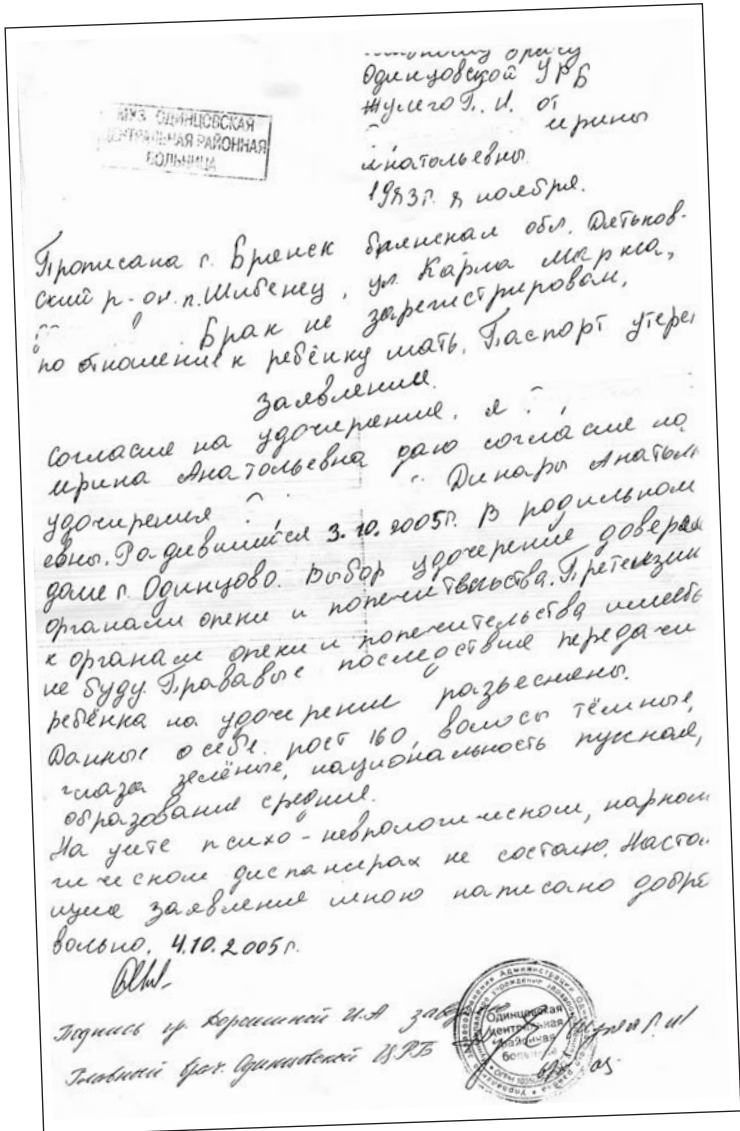 МУЗ ОДИНЦОВСКАЯ
ЦЕНТРАЛЬНАЯ РАЙОННАЯ
БОЛЬНИЦА
врачу
Одинцовской УРБ
Жулего Г. И. от
ирины
Анатольевны
1983г. ноября.
Прописана г. Брянск брянская обл. Дятьков-
ский р-он. п. Шибенец, ул. Карла Маркса,
Брак не зарегистрирован,
по отношение к ребёнку мать. Паспорт утере
Заявление.
согласие на удочерение. я
ирина Анатольевна даю согласие на
удочерения Динары Анатоль
евны. Родившийся 3.10.2005г. В родильном
доме г. Одинцово. Выбор удочерение доверяю
органами опеки и попечительства. Претензии
к органам опеки и попечительства иметь
не буду. Прававые последствие передачи
ребёнка на удочерение разьеснены.
Данные о себе. рост 160, волосы тёмные,
глаза зелёные, национальность русская,
образование средние.
На учёте психо-неврологическом, нарколо
гическом диспансерах не состою. Настоя
щие заявление мною написано добро
вольно. 4.10.2005г.
Подпись гр. Дорониной И.А
Главный врач Одинцовской ЦРБ
Одинцовская
центральная
районная
больница